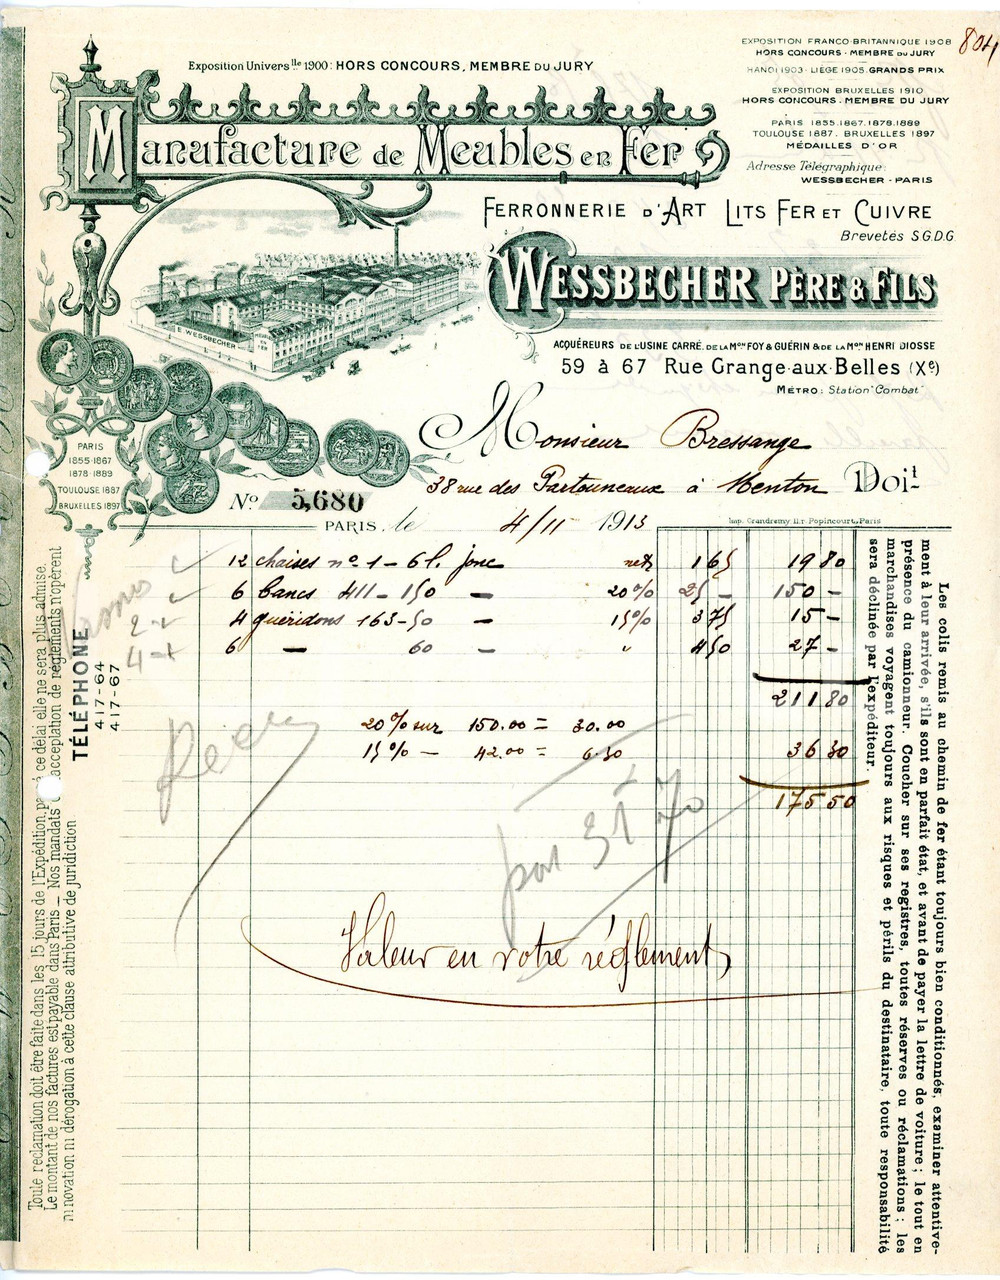 Exposition Univers.lle 1900: HORS CONCOURS, MEMBRE DU JURY
Manufacture de Meubles en Fer
EXPOSITION FRANCO-BRITANNIQUE 1908
HORS CONCOURS - MEMBRE DU JURY
HANOI 1903 - LIÈGE 1905. GRANDS PRIX
EXPOSITION BRUXELLES 1910
HORS CONCOURS. MEMBRE DU JURY
PARIS 1855.1867.1878.1889
TOULOUSE 1887. BRUXELLES 1897
MÉDAILLES D'OR
Adresse Télégraphique:
WESSBECHER - PARIS
804
FERRONNERIE D'ART LITS FER ET CUIVRE
Brevetés S.G.D.G.
WESSBECHER PÈRE & FILS
E. WESSBECHER
ACQUÉREURS DE L'USINE CARRÉ, DE LA Mon FOY & GUÉRIN & DE LA Mon HENRI DIOSSE
59 à 67 Rue Grange-aux-Belles (Xe)
MÉTRO: Station "Combat"
PARIS
1855-1867
1878-1889
TOULOUSE 1887
BRUXELLES 1897
Monsieur Bressange
38 rue des Partouneaux à Menton Doit
No 5,680
PARIS, le 4/11 1913
Imp. Grandremy 11, r. Popincourt, Paris
12 chaises no 1 - 6 l. jonc net 165 19 80
6 bancs 411 - 150 - 20% 25 - 150 -
4 guéridons 163-50 - 15% 375 15 -
6 - 60 - " 450 27 -
211 80
20% sur 150.00 = 30.00
15% - 42.00 = 6.30 36 30
175 50
par 31 70
Valeur en votre règlement
TÉLÉPHONE
417-64
417-67
Toute réclamation doit être faite dans les 15 jours de l'Expédition, passé ce délai elle ne sera plus admise.
Le montant de nos factures est payable dans Paris _ Nos mandats acceptation de règlements n'opèrent
ni novation ni dérogation à cette clause attributive de juridiction
Les colis remis au chemin de fer étant toujours bien conditionnés, examiner attentive-
ment à leur arrivée, s'ils sont en parfait état, et avant de payer la lettre de voiture; le tout en
présence du camionneur. Coucher sur ses registres, toutes réserves ou réclamations; les
marchandises voyagent toujours aux risques et périls du destinataire, toute responsabilité
sera déclinée par l'expéditeur.